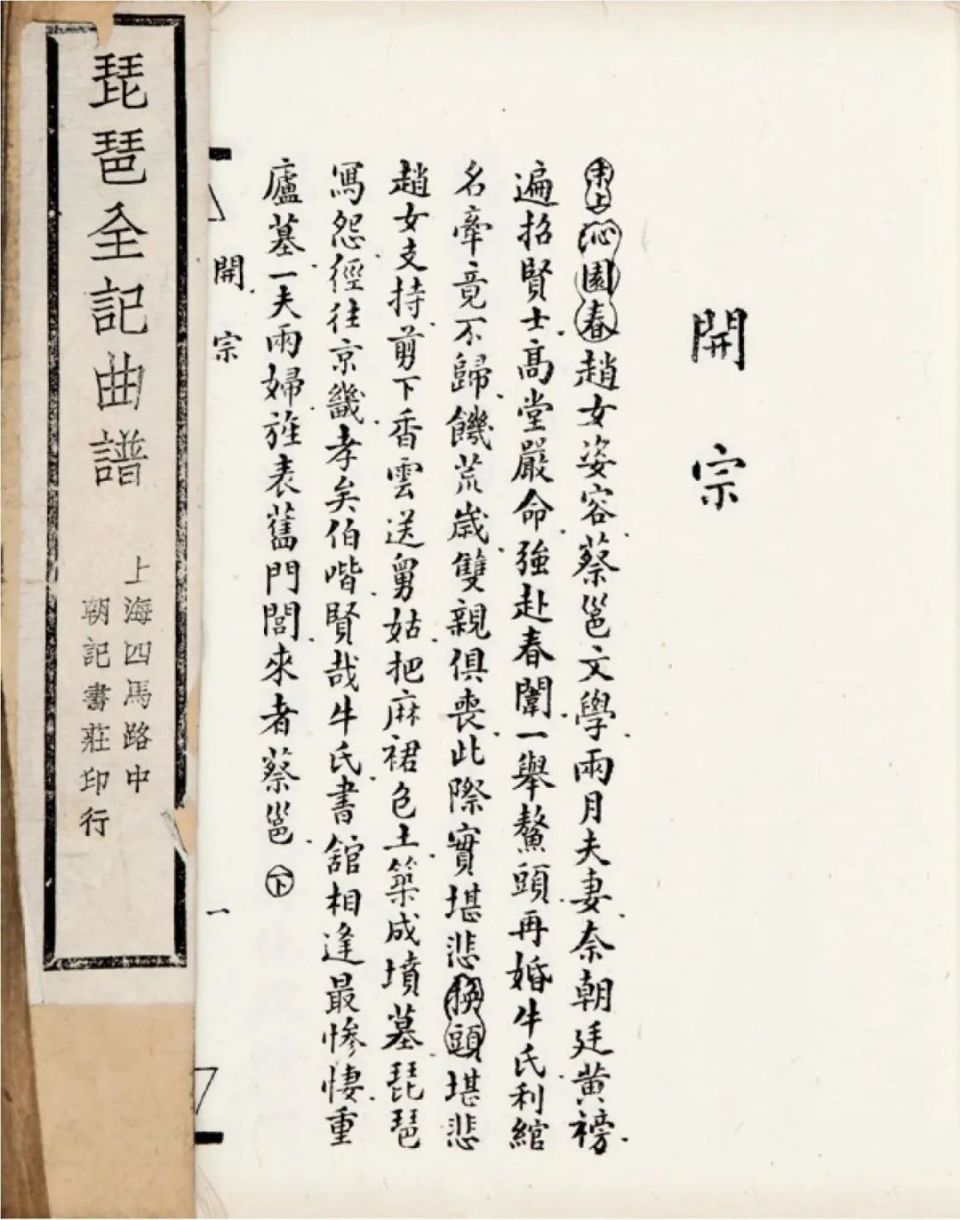 開宗
末上沁園春趙女姿容蔡邕文學兩月夫妻奈朝廷黄榜
遍招賢士高堂嚴命強赴春闈一舉鰲頭再婚牛氏利綰
名牽竟不歸饑荒歲雙親俱喪此際實堪悲換頭堪悲
趙女支持剪下香雲送舅姑把麻裙包土築成墳墓琵琶
寫怨徑往京畿孝矣伯喈賢哉牛氏書舘相逢最慘悽重
廬墓一夫兩婦旌表舊門閭來者蔡邕下
開宗
一
琵琶全記曲譜
上海四馬路中
朝記書莊印行